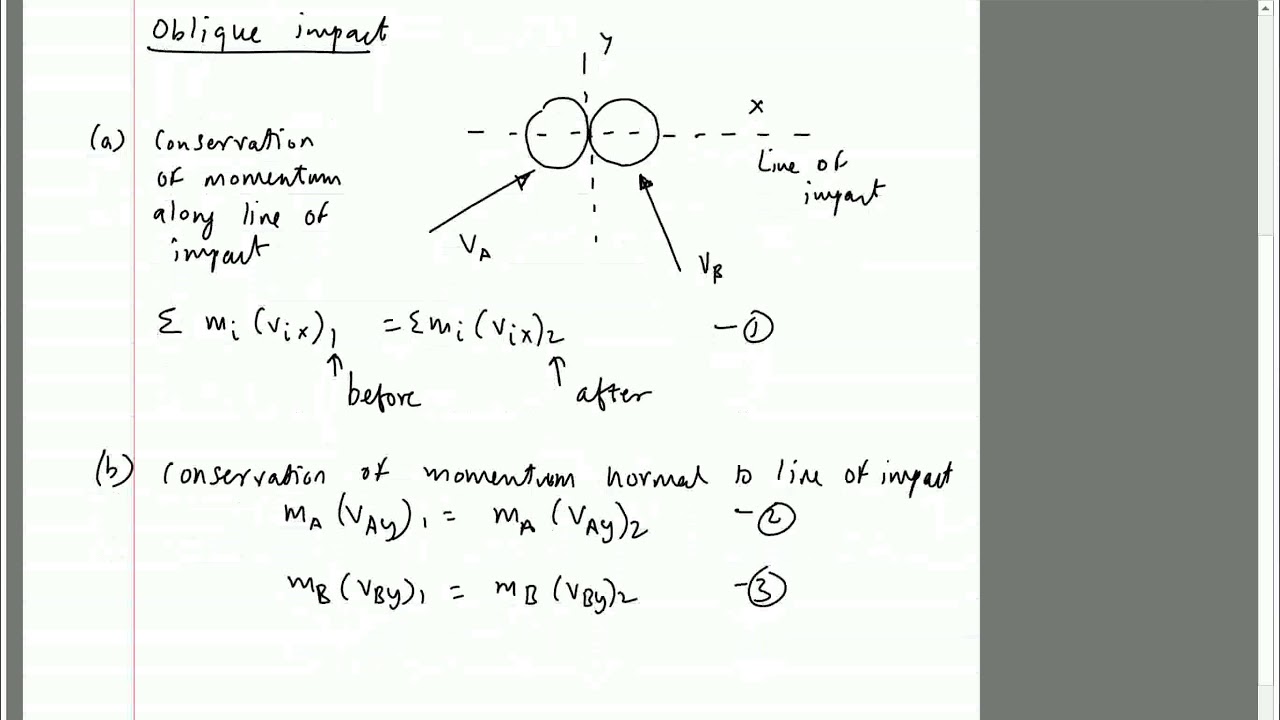 Oblique impact
y
x
Line of
impact
(a) Conservation
of momentum
along line of
impact
V_A
V_B
Σ m_i (v_ix)_1 = Σ m_i (v_ix)_2 - ①
↑ before ↑ after
(b) Conservation of momentum normal to line of impact
m_A (V_Ay)_1 = m_A (V_Ay)_2 - ②
m_B (V_By)_1 = m_B (V_By)_2 - ③